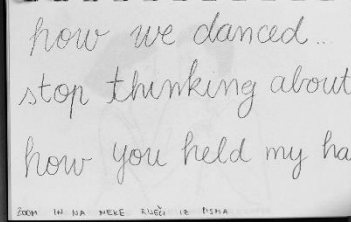 how we danced...
stop thinking about
how you held my ha
ZOOM IN NA NEKE RIJEČI IZ PISMA